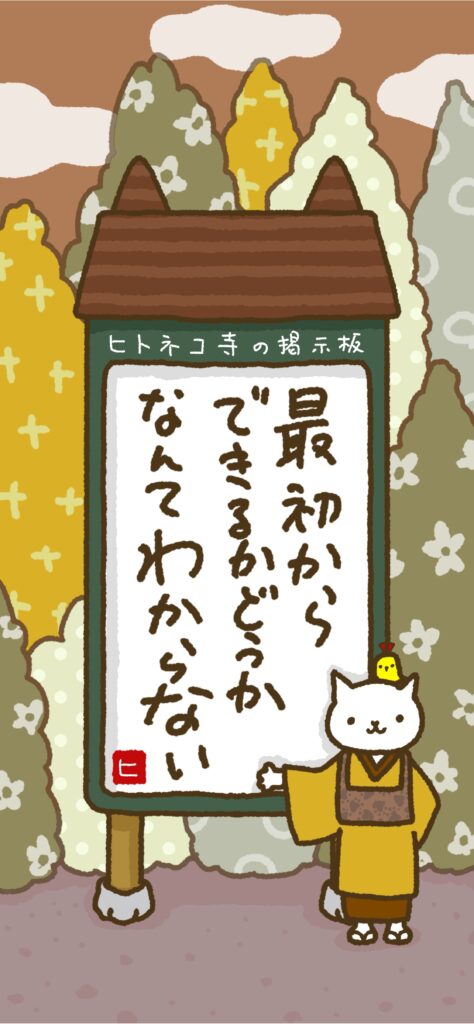 ヒトネコ寺の掲示板
最初から
できるかどうか
なんてわからない
ヒ